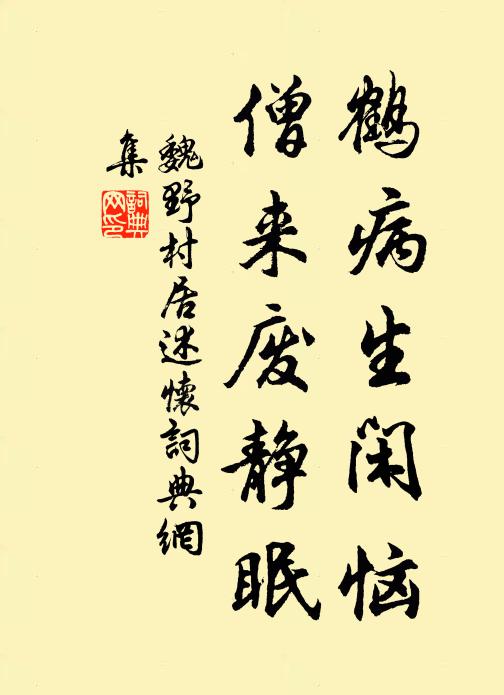 鹤病生闲恼
僧来废静眠
魏野村居述懷詞典網
集
詞典
网印